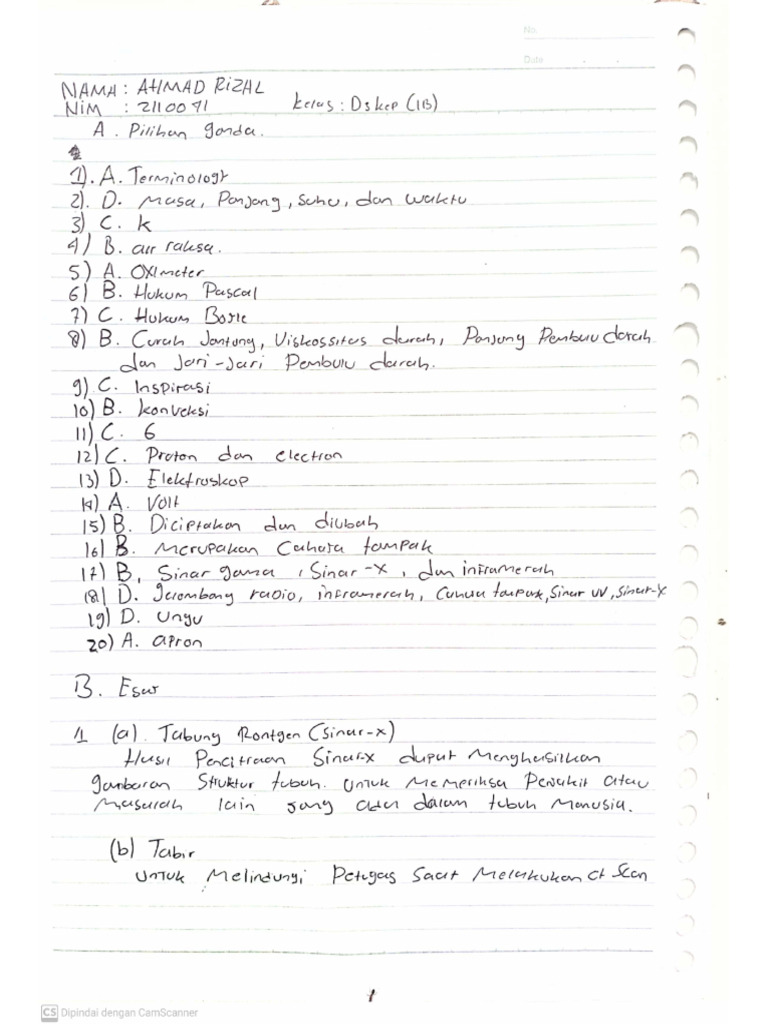 No.
Date
NAMA : AHMAD RIZAL
NIM : 2110071 Kelas : D3kep (1B)
A. Pilihan ganda.
1). A. Terminology
2). D. Masa, Panjang, Suhu, dan waktu
3) C. k
4) B. air raksa.
5) A. OXimeter
6) B. Hukum Pascal
7) C. Hukum Boyle
8) B. Curah Jantung, Viskossitas darah, Panjang Pembulu darah
dan Jari-Jari Pembulu darah.
9) C. Inspirasi
10) B. konveksi
11) C. 6
12) C. Proton dan electron
13) D. Elektroskop
14) A. Volt
15) B. Diciptakan dan diubah
16) B. Merupakan Cahaya tampak
17) B, Sinar gama, Sinar-X, dan inframerah
18) D. gelombang radio, inframerah, Cahaya tampak, Sinar UV, Sinar-X
19) D. Ungu
20) A. apron
B. Esay
1 (a). Tabung Rontgen (Sinar-x)
Hasil Pencitraan Sinar-x dapat Menghasilkan
gambaran Struktur tubuh. Untuk Memeriksa Penyakit atau
Masalah lain yang ada dalam tubuh Manusia.
(b) Tabir
Untuk Melindungi Petugas Saat Melakukan ct Scan
1
CS Dipindai dengan CamScanner